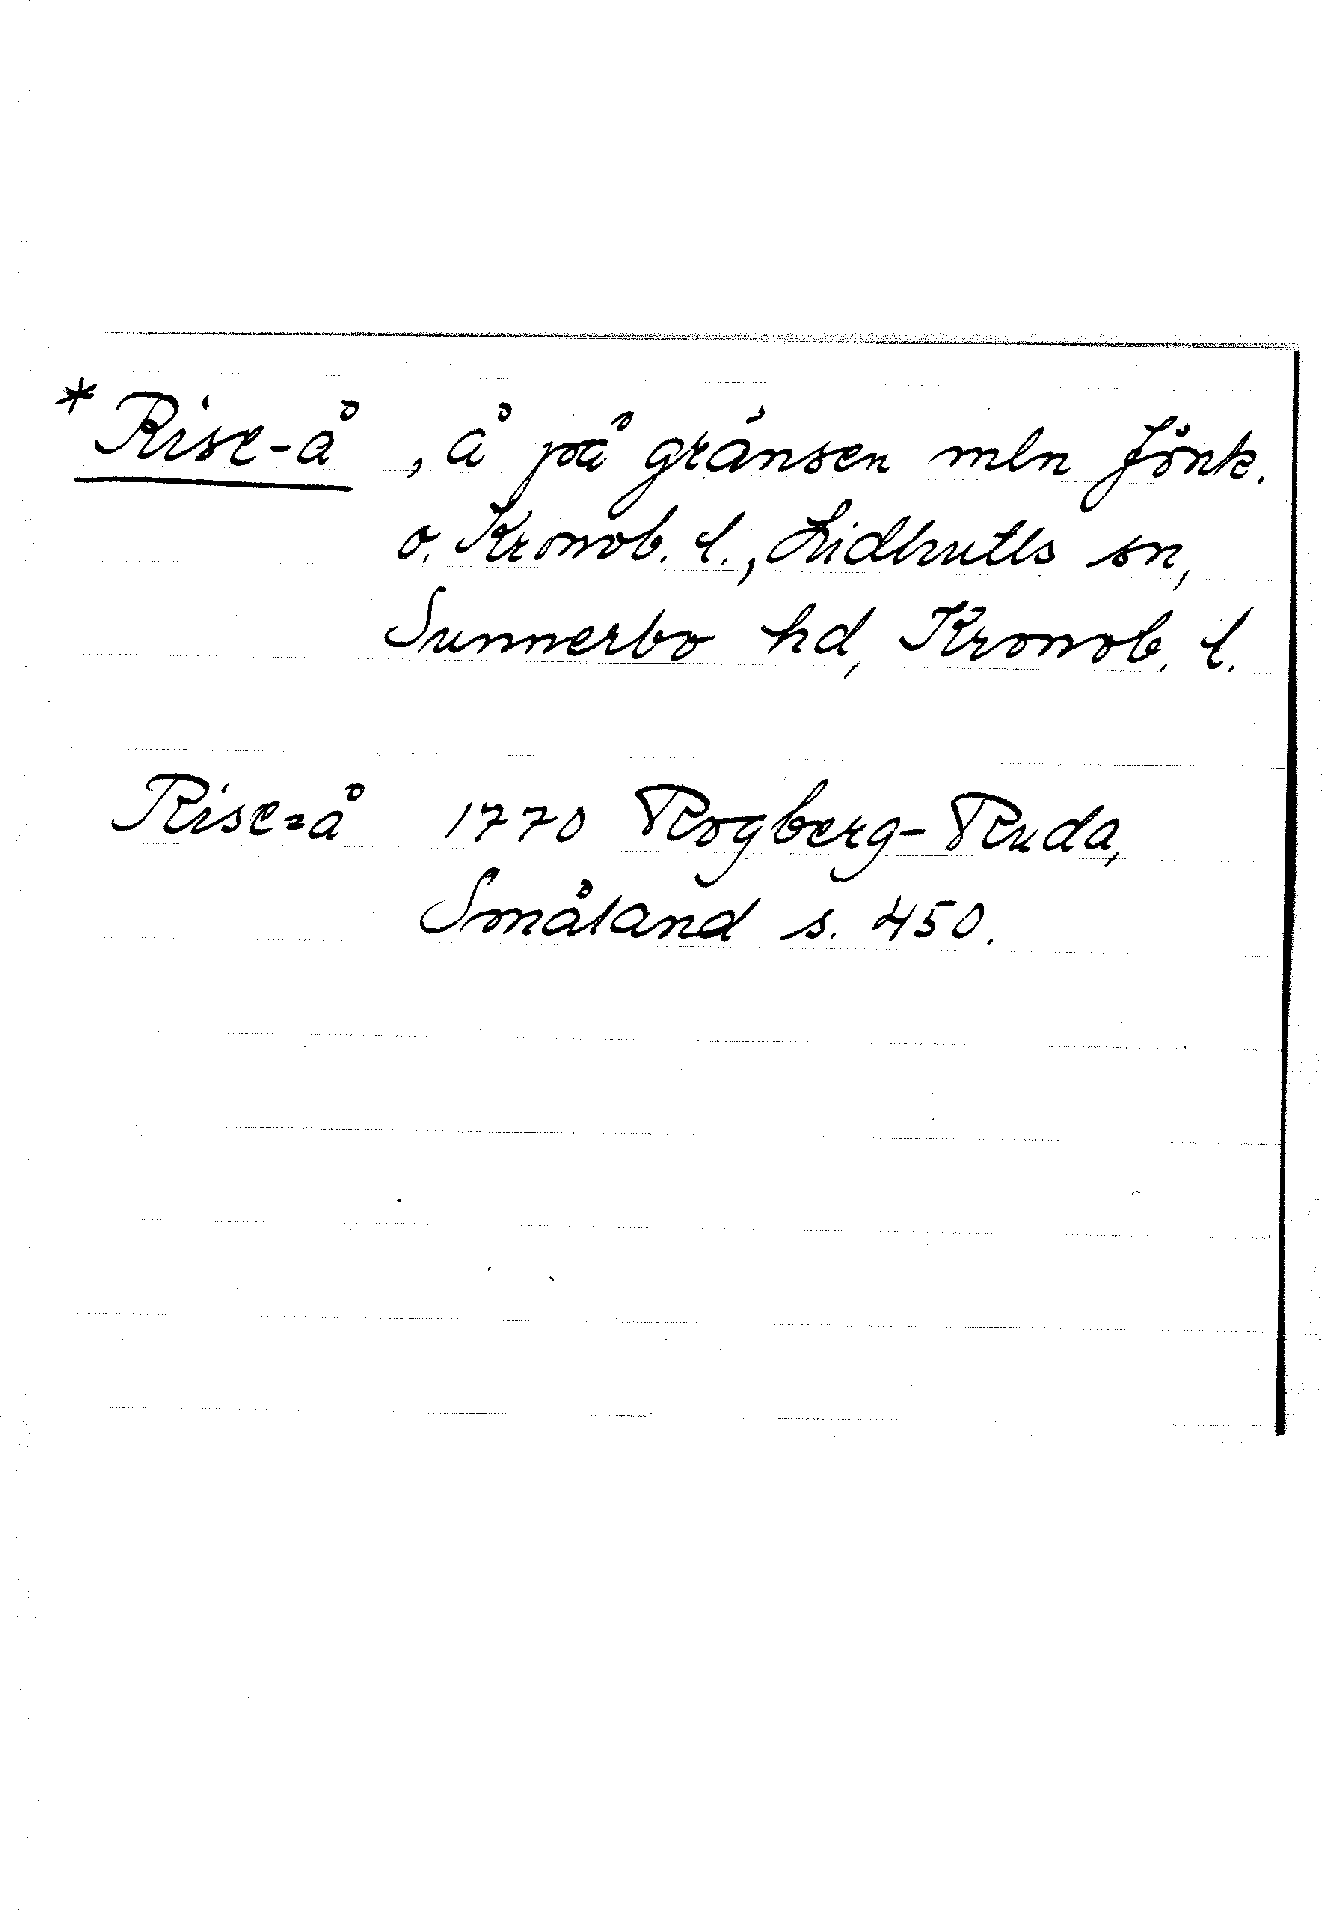 *Rise-å, å på gränsen mln Jönk.
o. Kronob. l., Lidhults sn,
Sunnerbo hd, Kronob. l.
Rise=å 1770 Rogberg-Ruda,
Småland s. 450.